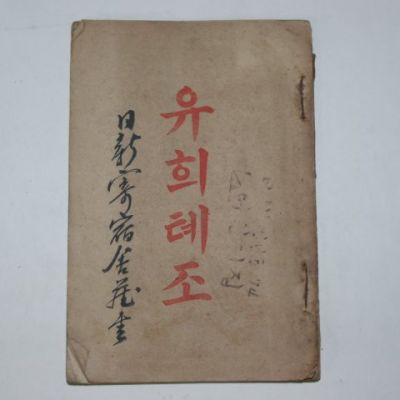 유희톄조
日新寄宿舍藏書